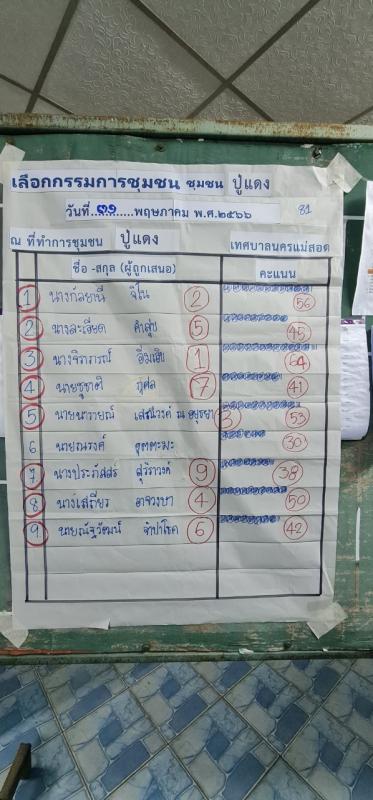 เลือกกรรมการชุมชน ชุมชน ปู่แดง
วันที่...๓๑......พฤษภาคม พ.ศ.๒๕๖๖ 81
ณ ที่ทำการชุมชน ปู่แดง เทศบาลนครแม่สอด
ชื่อ -สกุล (ผู้ถูกเสนอ) คะแนน
1 นางกัลยานี จิโน 2 56
2 นางละเอียด คำสุ่ม 5 45
3 นางจิราภรณ์ อิ่มเอิบ 1 64
4 นายชูชาติ กุศล 7 41
5 นายนารายณ์ เสนีวงค์ ณ อยุธยา 3 53
6 นายณรงค์ อุตตะมะ 30
7 นางประภัสสร สุริกาวงค์ 9 38
8 นางเสถียร อาจวงษา 4 50
9 นายณัฐวัฒน์ จำปาโชค 6 42